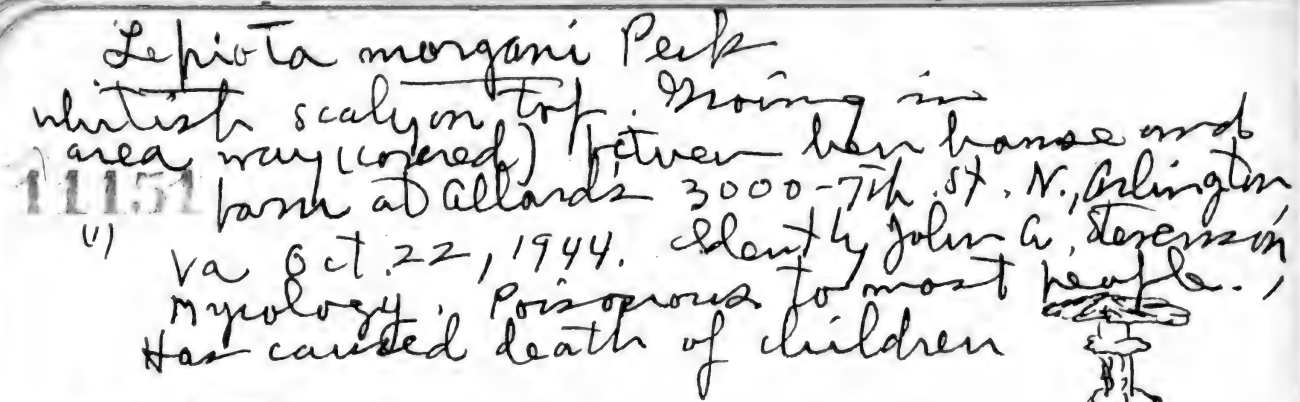 Lepiota morgani Peck
whitish scaly on top. Groing in
area way (covered) between hen house and
11151 barn at Allards 3000-7th. St. N., Arlington,
(1) Va Oct. 22, 1944. Ident by John A. Stevenson,
Mycology. Poisonous to most people.
Has caused death of children